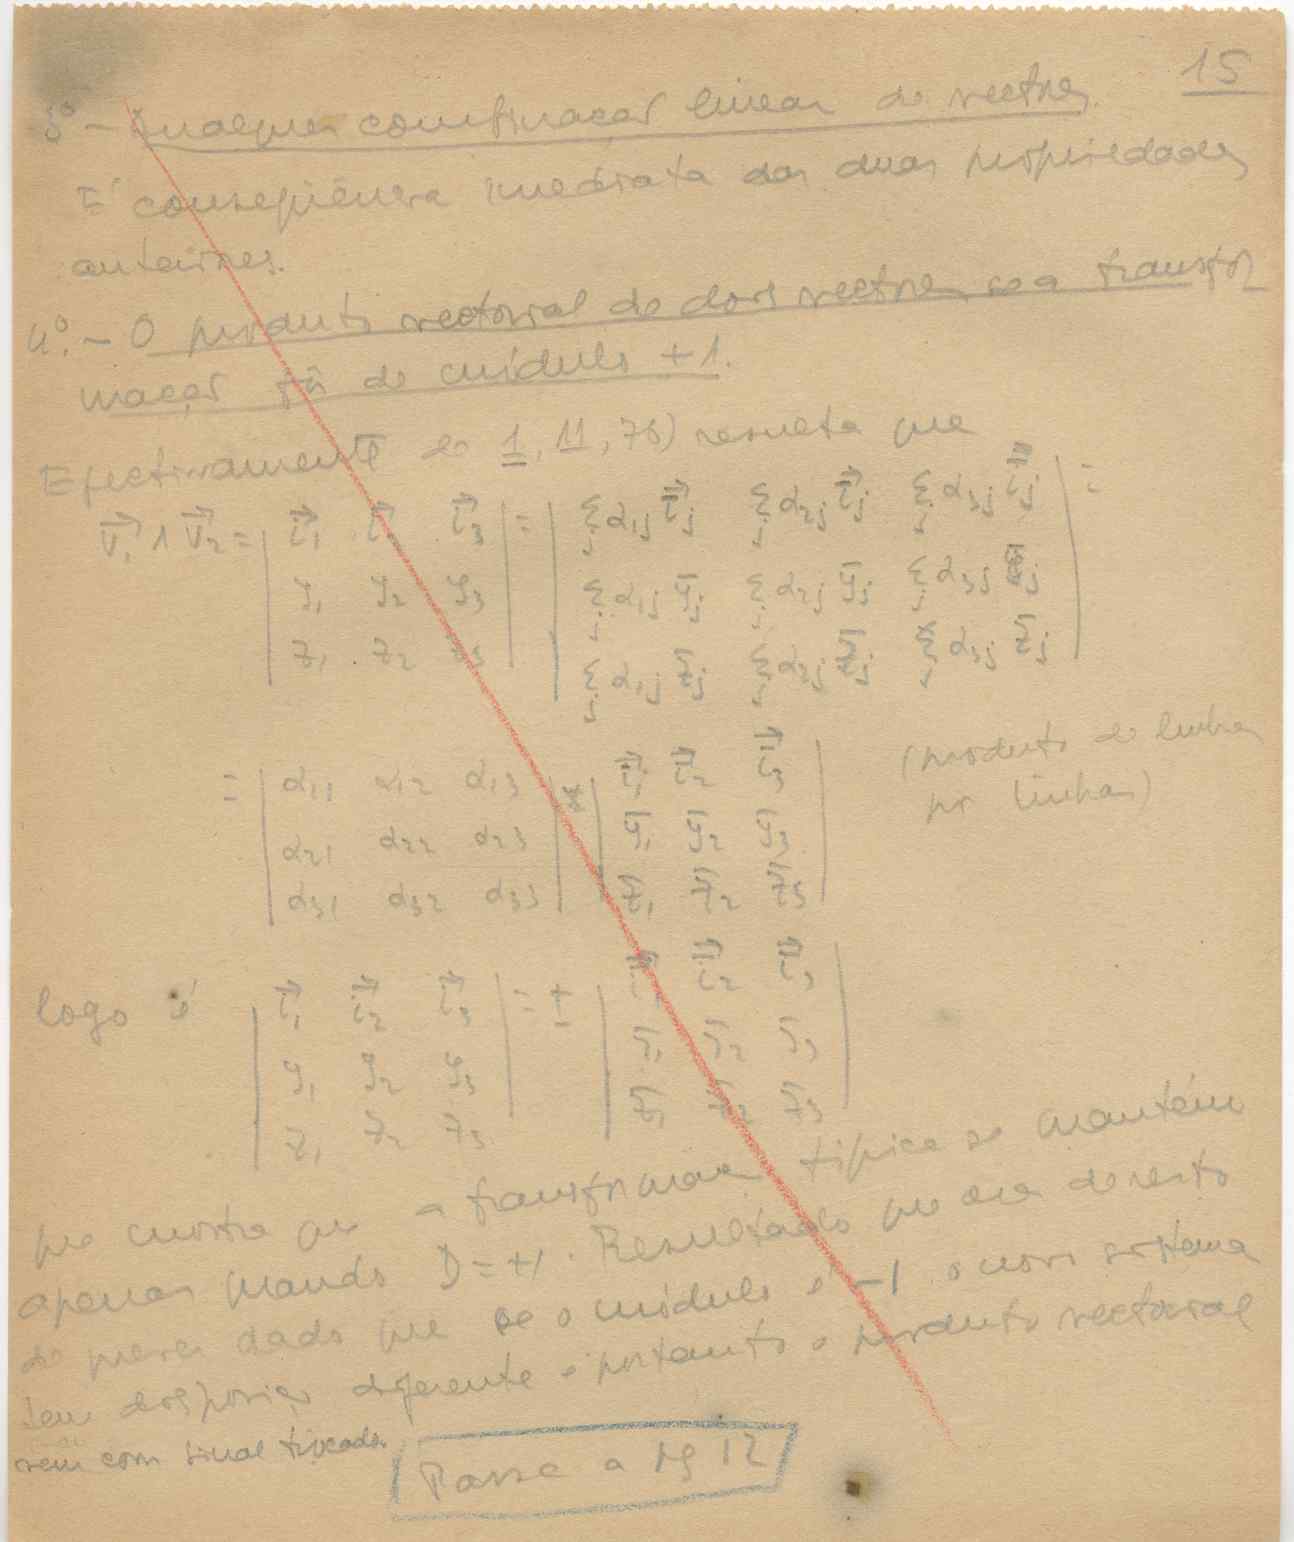 15
3º - Qualquer combinação linear de vectores.
É conseqüência imediata das duas propriedades
anteriores.
4º. - O produto vectorial de dois vectores se a transfor
mação fôr de módulo +1.
Efectivamente de 1, 11, 78) resulta que
v⃗₁ ∧ v⃗₂ = | i⃗₁ i⃗₂ i⃗₃ | = | Σⱼ α₁ⱼ i̅⃗ⱼ Σⱼ α₂ⱼ i̅⃗ⱼ Σⱼ α₃ⱼ i̅⃗ⱼ | =
| y₁ y₂ y₃ | | Σⱼ α₁ⱼ y̅ⱼ Σⱼ α₂ⱼ y̅ⱼ Σⱼ α₃ⱼ y̅ⱼ |
| z₁ z₂ z₃ | | Σⱼ α₁ⱼ z̅ⱼ Σⱼ α₂ⱼ z̅ⱼ Σⱼ α₃ⱼ z̅ⱼ |
= | α₁₁ α₁₂ α₁₃ | × | i̅⃗₁ i̅⃗₂ i̅⃗₃ | (produto de linhas
| α₂₁ α₂₂ α₂₃ | | y̅₁ y̅₂ y̅₃ | por linhas)
| α₃₁ α₃₂ α₃₃ | | z̅₁ z̅₂ z̅₃ |
logo é | i⃗₁ i⃗₂ i⃗₃ | = ± | i̅⃗₁ i̅⃗₂ i̅⃗₃ |
| y₁ y₂ y₃ | | y̅₁ y̅₂ y̅₃ |
| z₁ z₂ z₃ | | z̅₁ z̅₂ z̅₃ |
que mostra que a transformação típica se mantém
apenas quando D = +1. Resultado que era de resto
de prever dado que se o módulo é -1 o novo sistema
tem disposição diferente e portanto o produto vectorial
vem com sinal trocado.
Passa a pg 12